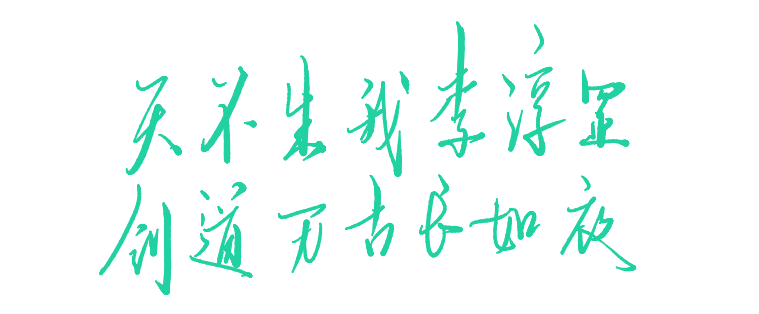 天不生我李淳罡
剑道万古长如夜